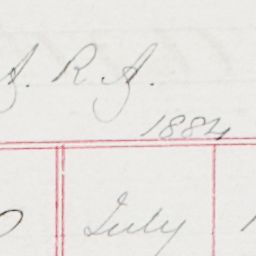 A. R A.
1884
July